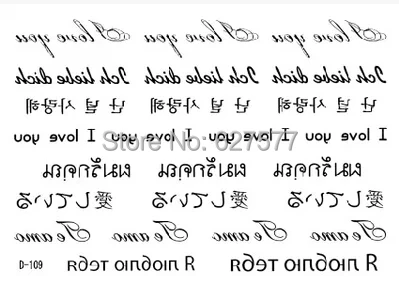 I love you I love you I love you
Ich liebe dich Ich liebe dich Ich liebe dich
난 널 사랑해 난 널 사랑해 난 널 사랑해
I love you I love you I love you I love you
Store No: 027577
ผมรักคุณ ผมรักคุณ ผมรักคุณ
愛している 愛している 愛している
Te amo Te amo Te amo Te amo
D-109 Я люблю тебя Я люблю тебя